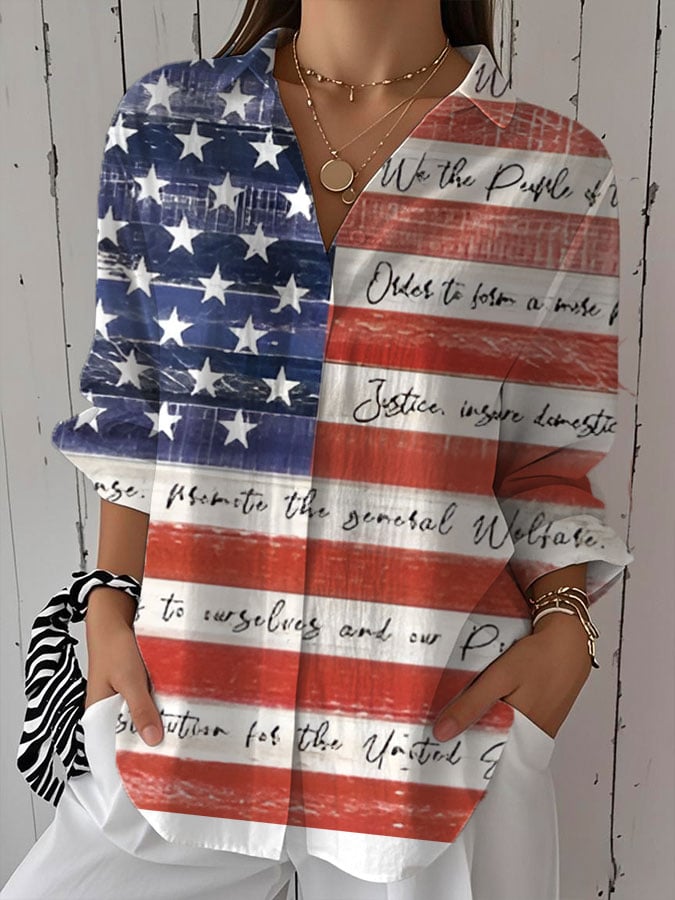 W
We the People of
Order to form a more
Justice, insure domestic
nse, promote the general Welfare,
to ourselves and our P
stitution for the United S